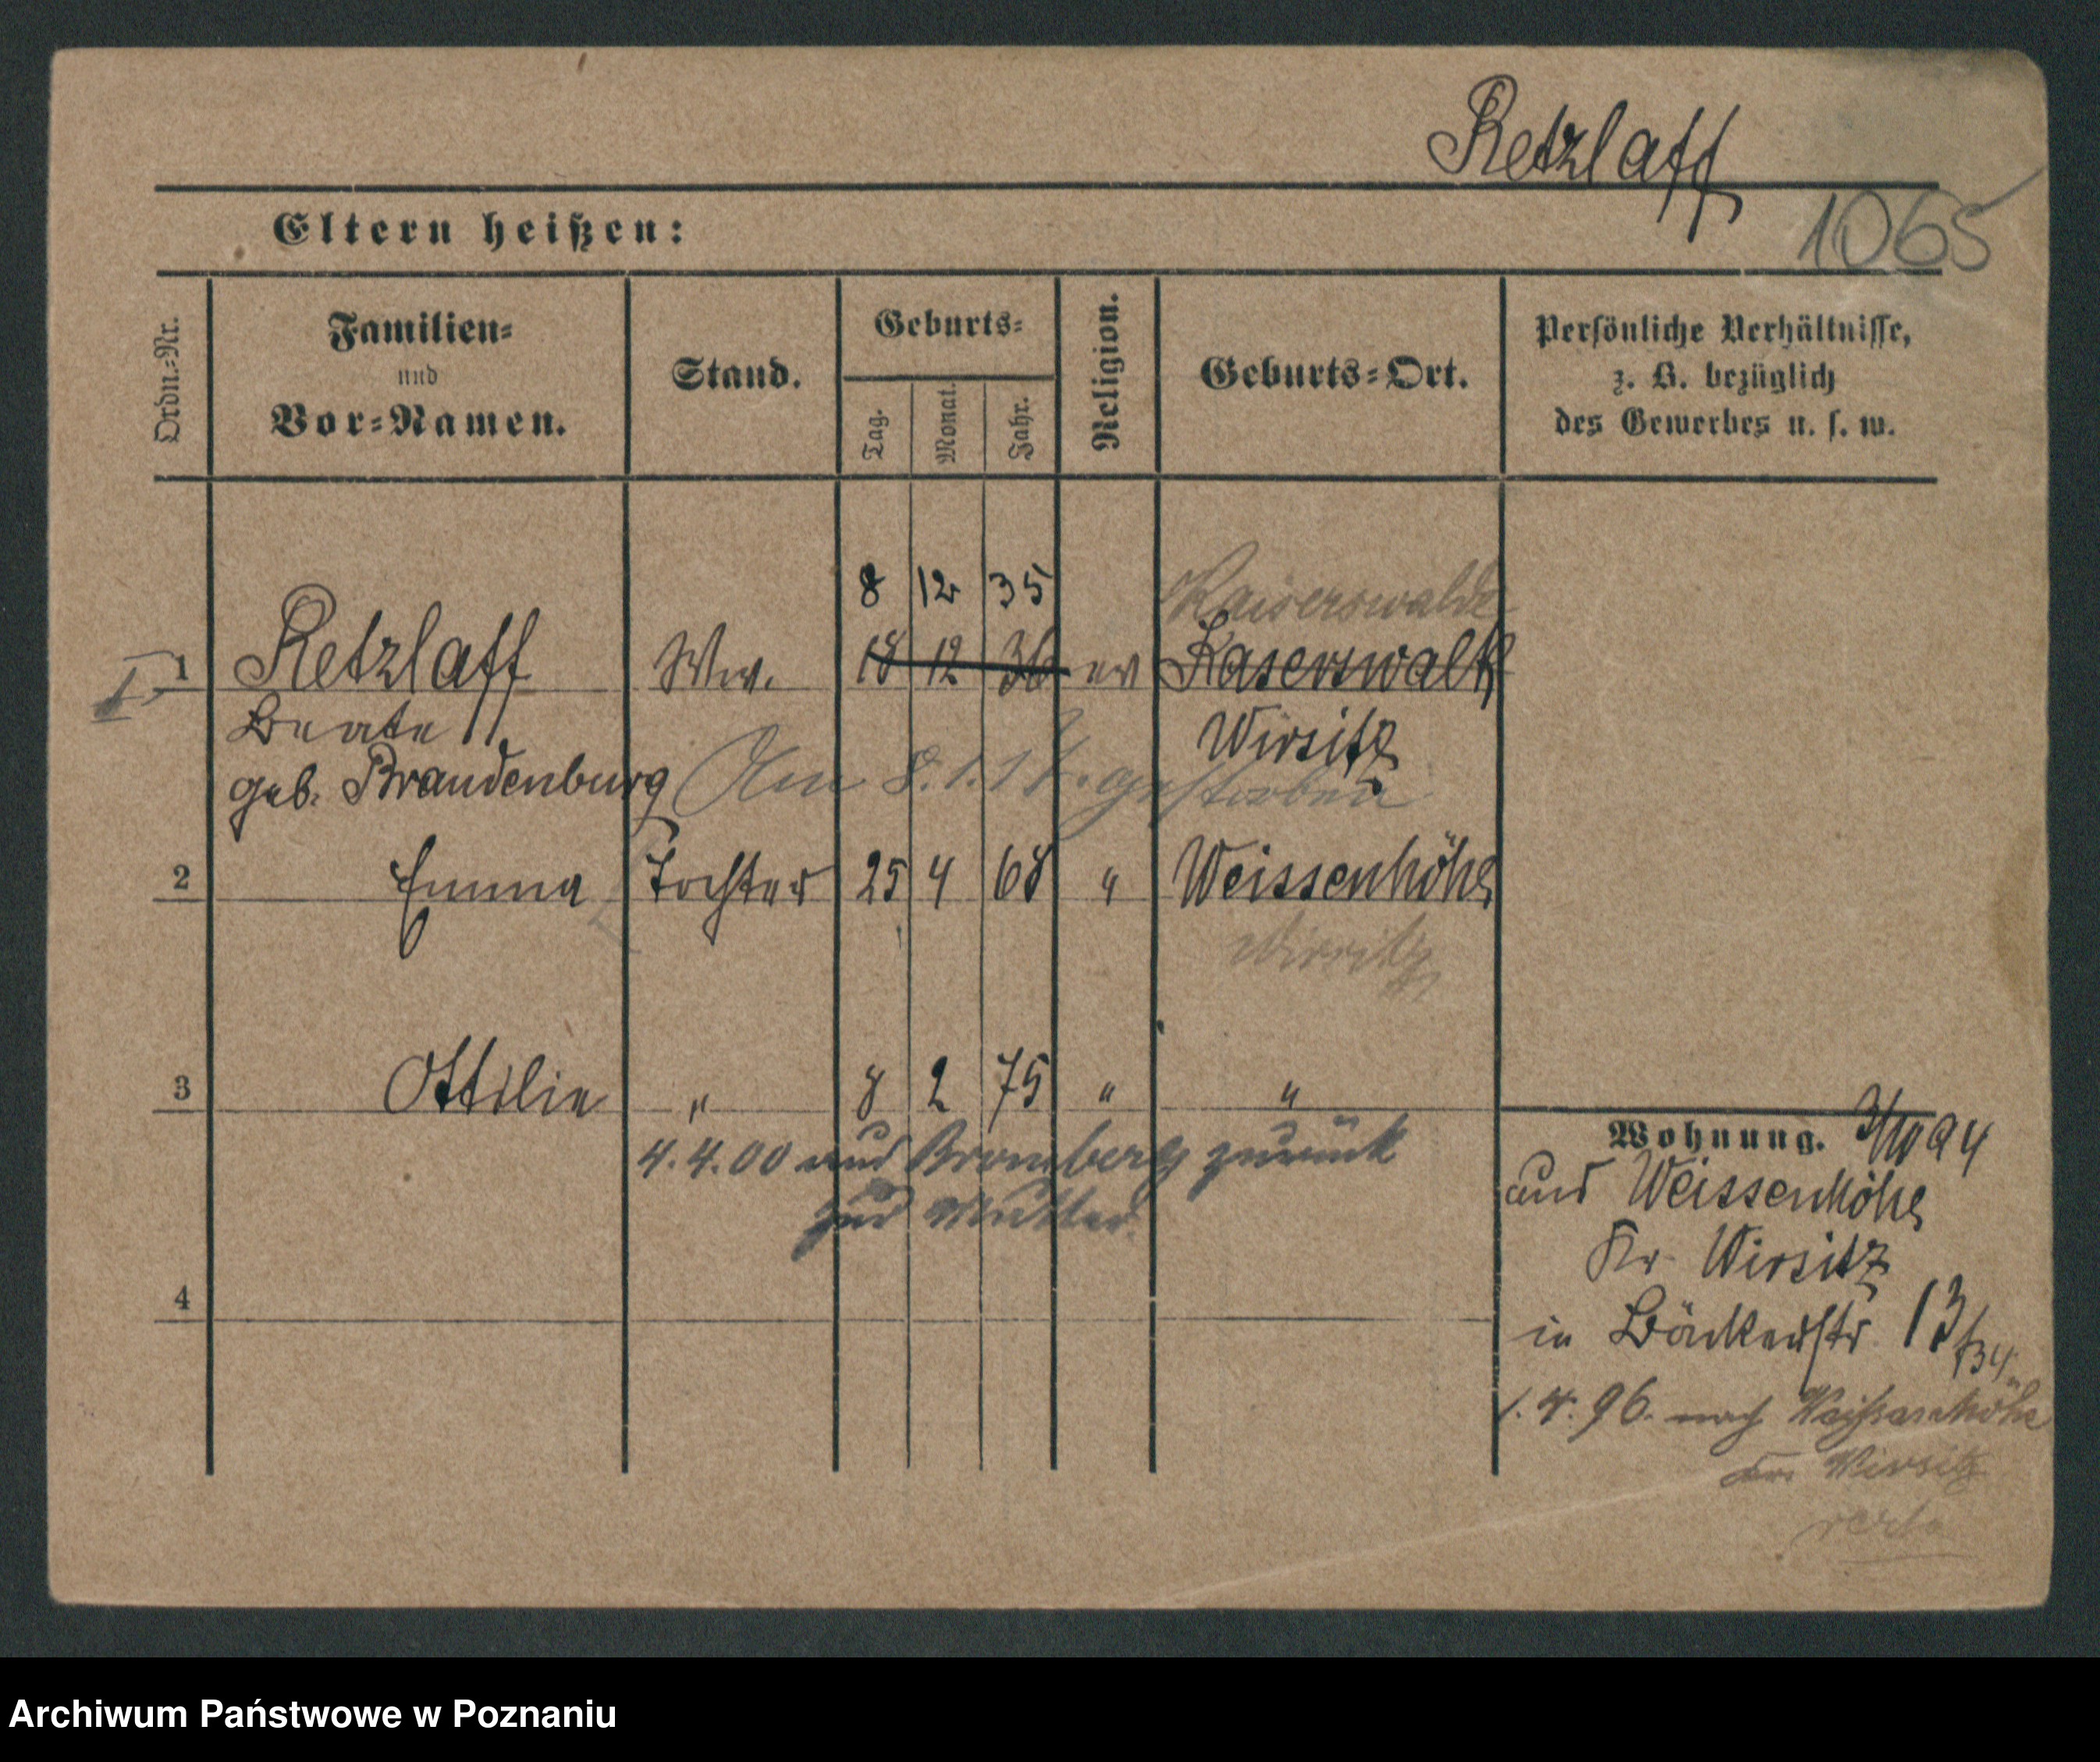 Retzlaff
1065
Eltern heißen:
Ordn.=Nr.
Familien=
und
Vor=Namen.
Stand.
Geburts=
Tag.
Monat.
Jahr.
Religion.
Geburts=Ort.
Persönliche Verhältnisse,
z. B. bezüglich
des Gewerbes u. s. w.
8 12 35 Kaiserswalde
1 Retzlaff Ww. 18 12 36 ev Kaserswalde
Beate Wirsitz
geb. Brandenburg Am 8.1.1 gestorben
2 Emma Tochter 25 4 68 " Weissenhöhe
Wirsitz
3 Ottilie " 8 2 75 " "
4.4.00 aus Bromberg zurück
zur Mutter
4
Wohnung. 3/10 94
aus Weissenhöhe
Kr Wirsitz
in Bäckerstr. 13
1.4.96. nach Weißenhöhe
Kr. Wirsitz
Archiwum Państwowe w Poznaniu